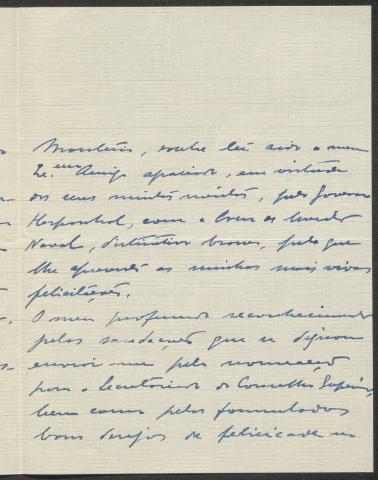 Monteiro, soube ter sido o meu
Ex.mo Amigo agraciado, em virtude
dos seus muitos méritos, pelo Governo
Hespanhol, com a Cruz de Merito
Naval, distintivo branco, pelo que
lhe apresento as minhas mais vivas
felicitações.
O meu profundo reconhecimento
pelas saudações que se dignou
enviar-me pela nomeação
para o Secretariado do Conselho Superior,
bem como pelos formulados
bons desejos de felicidade no